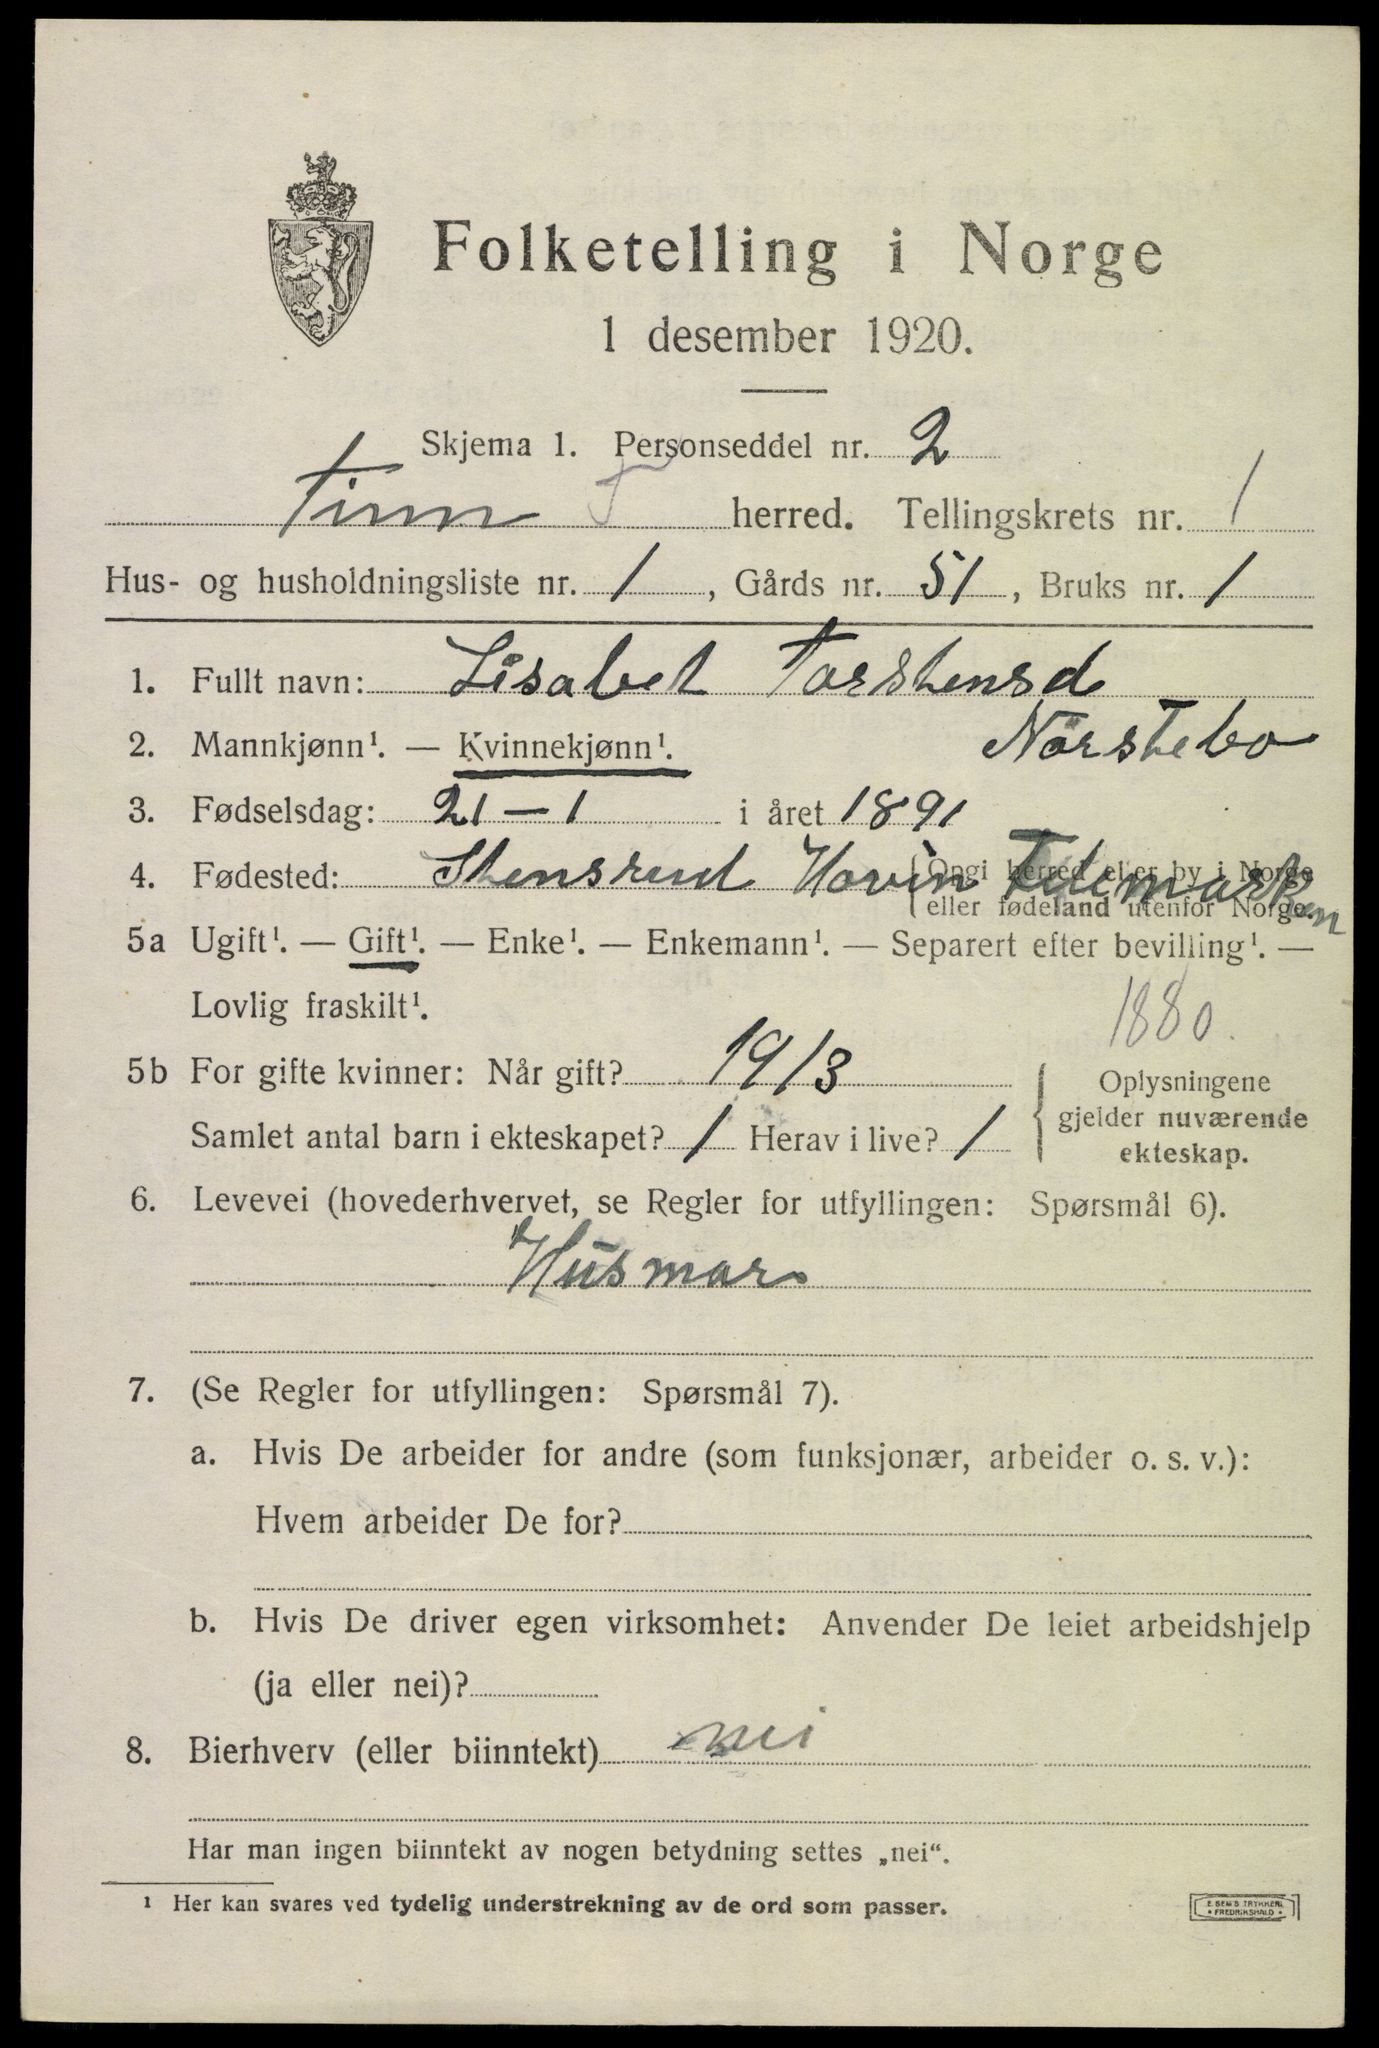 Folketelling i Norge
1 desember 1920.
Skjema 1. Personseddel nr. 2
Tinn T herred. Tellingskrets nr. 1
Hus- og husholdningsliste nr. 1, Gårds nr. 51, Bruks nr. 1
1. Fullt navn: Lisabet Torstensd
Nørstebø
2. Mannkjønn¹. — Kvinnekjønn¹.
3. Fødselsdag: 21 – 1 i året 1891
4. Fødested: Stensrud Hovin Telemarken
{Opgi herred eller by i Norge
eller fødeland utenfor Norge.
5a Ugift¹. — Gift¹. — Enke¹. — Enkemann¹. — Separert efter bevilling¹. —
Lovlig fraskilt¹.
1880.
5b For gifte kvinner: Når gift? 1913
Samlet antal barn i ekteskapet? 1 Herav i live? 1
{Oplysningene
gjelder nuværende
ekteskap.
6. Levevei (hovederhvervet, se Regler for utfyllingen: Spørsmål 6).
Husmor
7. (Se Regler for utfyllingen: Spørsmål 7).
a. Hvis De arbeider for andre (som funksjonær, arbeider o. s. v.):
Hvem arbeider De for?
b. Hvis De driver egen virksomhet: Anvender De leiet arbeidshjelp
(ja eller nei)?
8. Bierhverv (eller biinntekt) nei
Har man ingen biinntekt av nogen betydning settes „nei“.
¹ Her kan svares ved tydelig understrekning av de ord som passer.
E. SEM'S TRYKKERI
• FREDRIKSHALD •